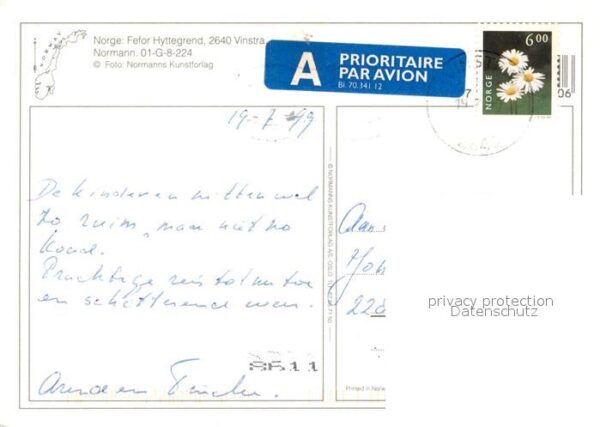 NORWAY
Norge: Fefor Hyttegrend, 2640 Vinstra
Normann. 01-G-8-224
© Foto: Normanns Kunstforlag
A PRIORITAIRE
PAR AVION
Bl. 70.341.12
6 00
NORGE
06
19-7-'99
De kinderen zitten wel
zo ruim, maar niet zo
koud.
Prachtige reis tot nu toe
en schitterend weer.
© NORMANNS KUNSTFORLAG AS, OSLO
Aan
2280
8611
Printed in Norw
privacy protection
Datenschutz